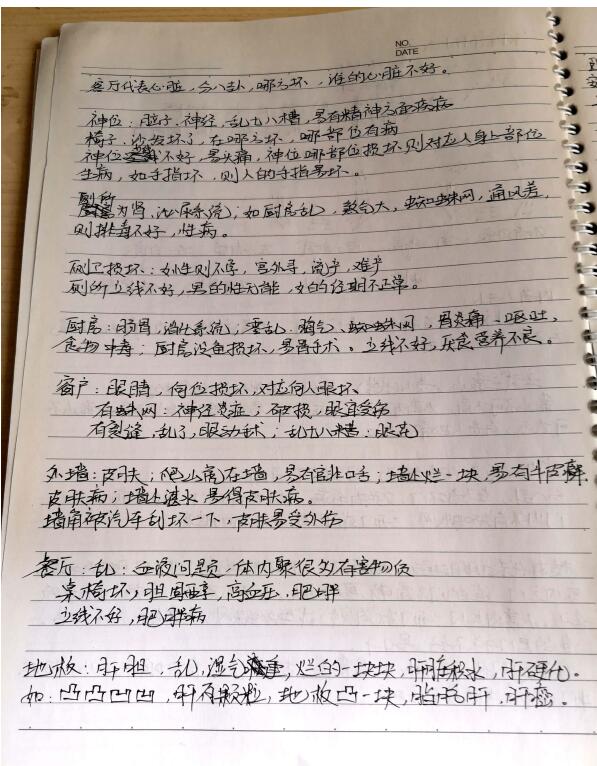 NO.
DATE
客厅代表心脏，分八卦，哪方坏，谁的心脏不好。
神位：脑子、神经，乱七八糟，易有精神方面疾病
椅子、沙发坏了，在哪方坏，哪部位有病
神位不好，易头痛，神位哪部位损坏则对应人身上部位
生病，如手指坏，则人的手指易坏。
厕所为肾、泌尿系统；如厨房乱，湿气大，蜘蛛网，通风差，
则排毒不好，性病。
厕卫损坏：女性则不孕，宫外孕，流产，难产
厕所立线不好，男的性无能，女的经期不正常。
厨房：肠胃，消化系统；零乱：胸气、蜘蛛网，胃炎痛、呕吐、
食物中毒；厨房设备损坏，易胃手术。立线不好，厌食营养不良。
窗户：眼睛，何位损坏，对应何人眼坏
有蛛网：神经炎症；破损，眼宜受伤
有裂缝，乱了，眼动手术；乱七八糟：眼花
外墙：皮肤；爬山虎在墙，易有官非口舌；墙处烂一块，易有牛皮癣
皮肤病；墙处湛水易得皮肤病。
墙角被汽车刮坏一下，皮肤易受外伤
餐厅：乱：血液问题，体内聚很多有害物质
桌椅坏，胆固醇，高血压，肥胖
立线不好，肥胖病
地板：肝胆，乱，湿气重，烂的一块块，肝脏积水，肝硬化。
如：凸凸凸凸，肝有颗粒，地板凸一块，脂肪肝，肝癌。